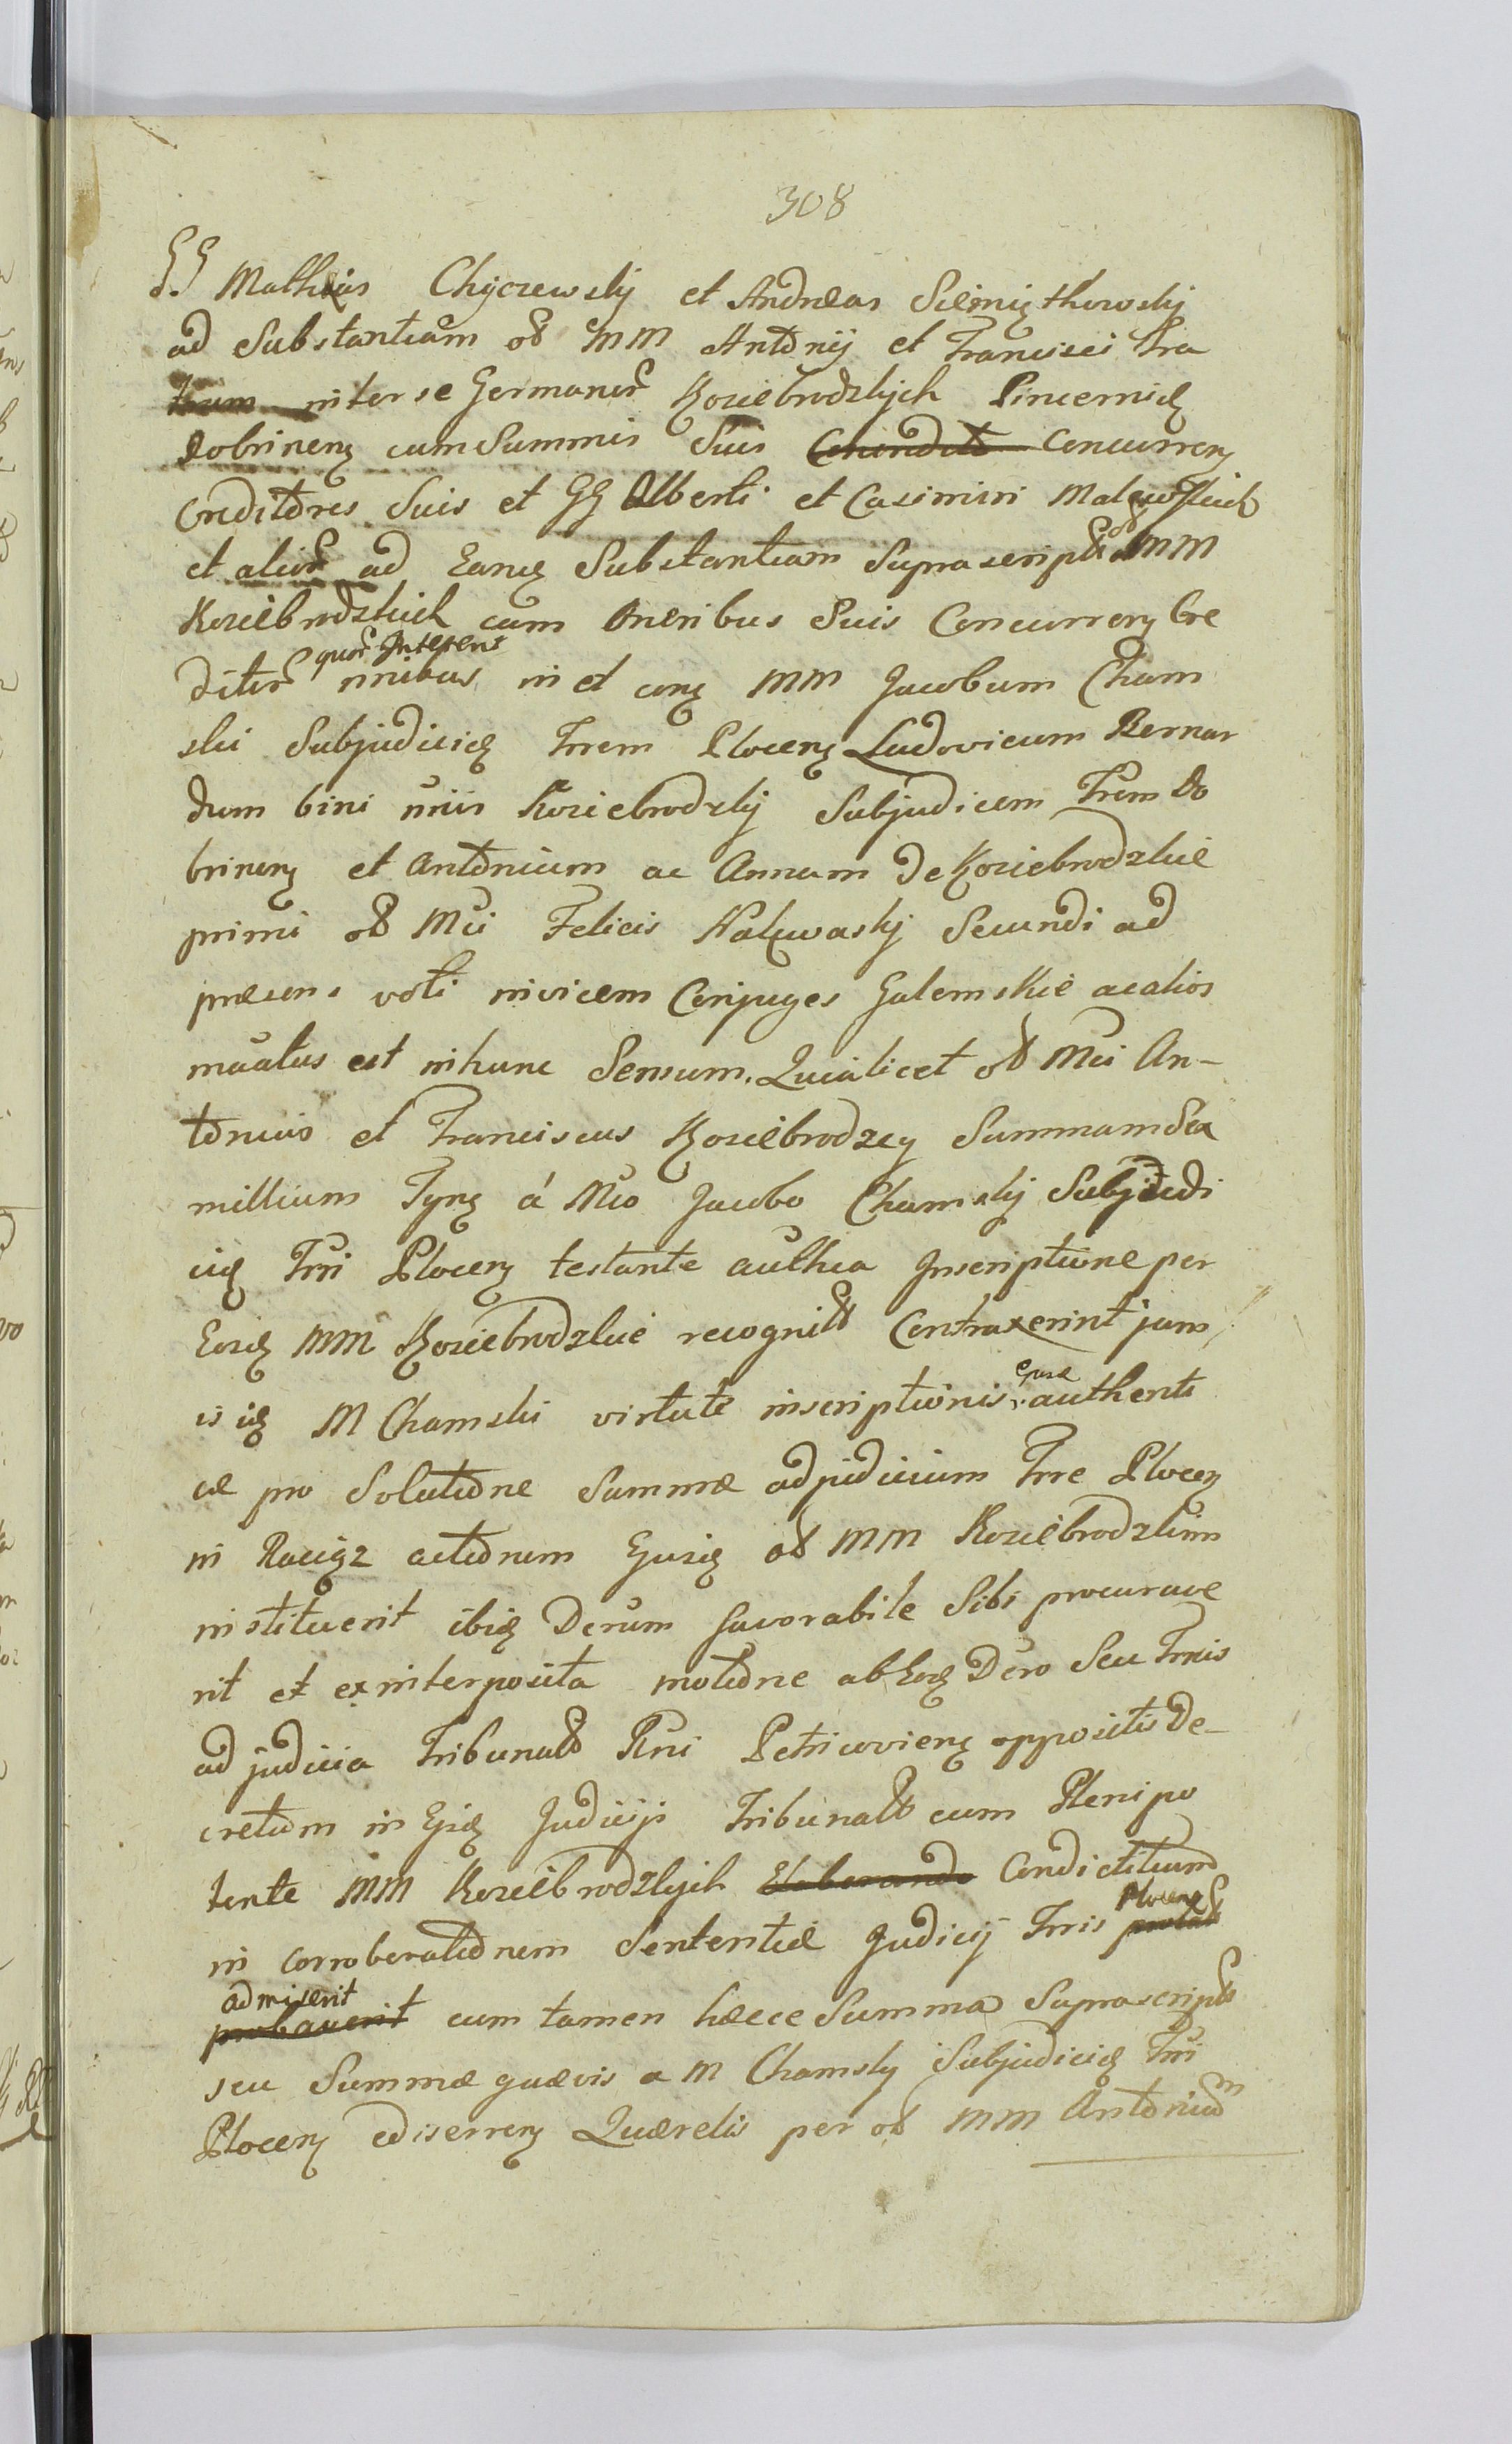 308
GG Mathias Chyczewsky et Andreas
ad Substantiam ol MM Antonij et Francisci Fra
trum inter se Germanor Koziebrodzkych Pincernid
Dobrinen cum Summis Suis Concurren
Creditores Suis et GG Alberti et Casimiri
et alior ad Eand Substantiam Suprascript ol MM
Koziebrodzkich cum Oneribus Suis Concurren Cre
quor Interent
ditor nnibus in et con MM Jacobum Cham
ski Subjudicid Trrem Plocen Ludovicum Bernar
dum bini nnis Koziebrodzky Subjudicem Trrem Do
brinen et Antonium ac Annam de Koziebrodzkie
primi ol Mci Felicis Nakwasky Secundi ad
præsens voti invicem Conjuges Galemskie ac alios
muatus est in hunc Sensum. Quia licet ol Mci An-
tonius et Franciscus Koziebrodzcy Summam Sex
millium Tyn á Mco Jacobo Chamsky Subjudi
cid Trri Plocen testante authca Inscriptione per
Eosd MM Koziebrodzkie recognit Contraxerint jam
is id M Chamski virtute inscriptionis ejusd authenti
cæ pro Solutione Summæ ad judicium Trre Plocen
in Raciąz actionem Ejusd ol MM Koziebrodzkim
instituerit ibid Derum favorabile Sibi procurave
rit et ex interposita motione ab Eod Dero Seu Trris
ad judicia Tribunal Rni Petricovien oppositis De-
cretum in Ejsd Judicijs Tribunal cum Plenipo
tente MM Koziebrodzkych Elaborando Condictitium
in corroborationem Sententiæ Judicij Trris Plocen
admiserit
probaverit cum tamen hæcce Summa Suprascript
seu Summæ quævis a M Chamsky Subjudicid Trri
Plocen edisserren Quærelis per ol MM Antonium